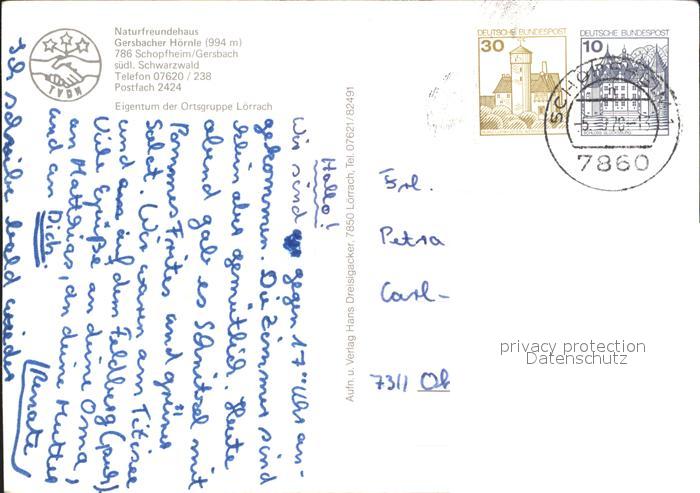 Naturfreundehaus
Gersbacher Hörnle (994 m)
786 Schopfheim/Gersbach
südl. Schwarzwald
Telefon 07620 / 238
Postfach 2424
Eigentum der Ortsgruppe Lörrach
TVDN
DEUTSCHE BUNDESPOST
30
DEUTSCHE BUNDESPOST
10
SCHOPFHEIM 1
7860
Hallo!
Wir sind gegen 17°° Uhr an-
gekommen. Die Zimmer sind
klein aber gemütlich. Heute
abend gab es Schnitzel mit
Pommes Frites und grünen
Salat. Wir waren am Titisee
und auf dem Feldberg (puh)
Viele Grüße an deine Oma,
an Matthias, an deine Mutter
und an Dich.
Renate
Ich schreibe bald wieder
Aufn. u. Verlag Hans Dreisigacker, 7850 Lörrach, Tel. 07621/82491
Frl.
Petra
Carl-
7311 Ob
privacy protection
Datenschutz